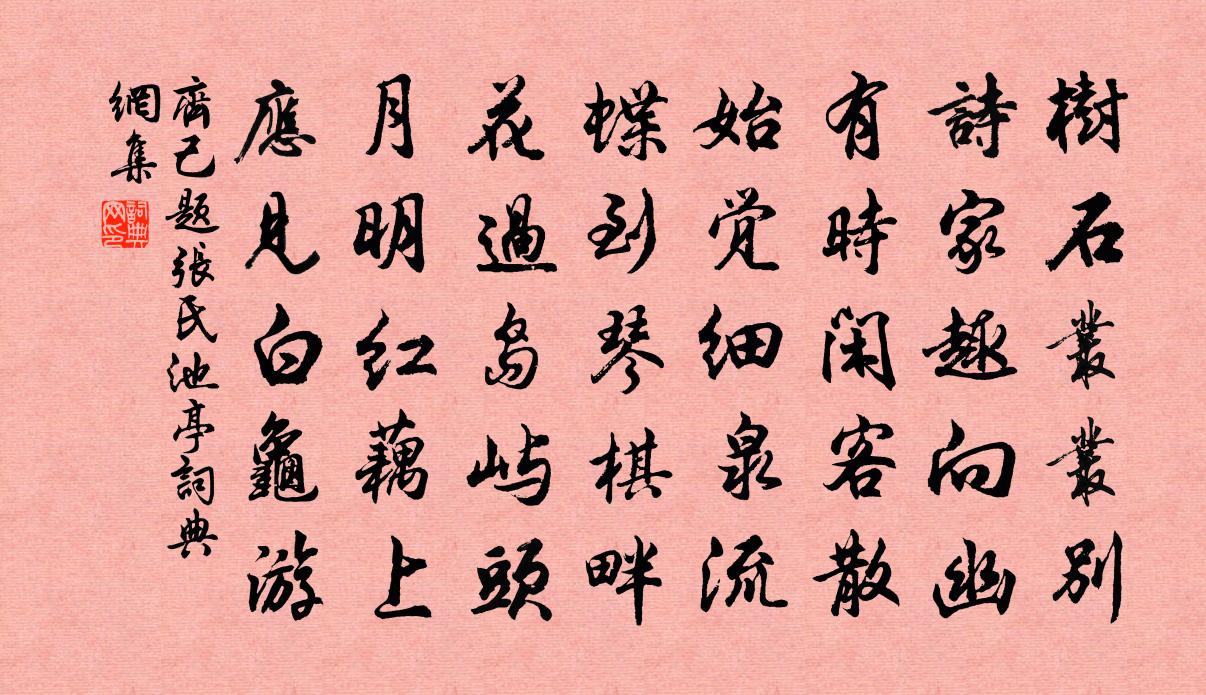 樹石叢叢別
詩家趣向幽
有時閑客散
始覚細泉流
蝶到琴棋畔
花過島嶼頭
月明红藕上
應見白龜游
齊己题張氏池亭詞典
網集
詞典
网印